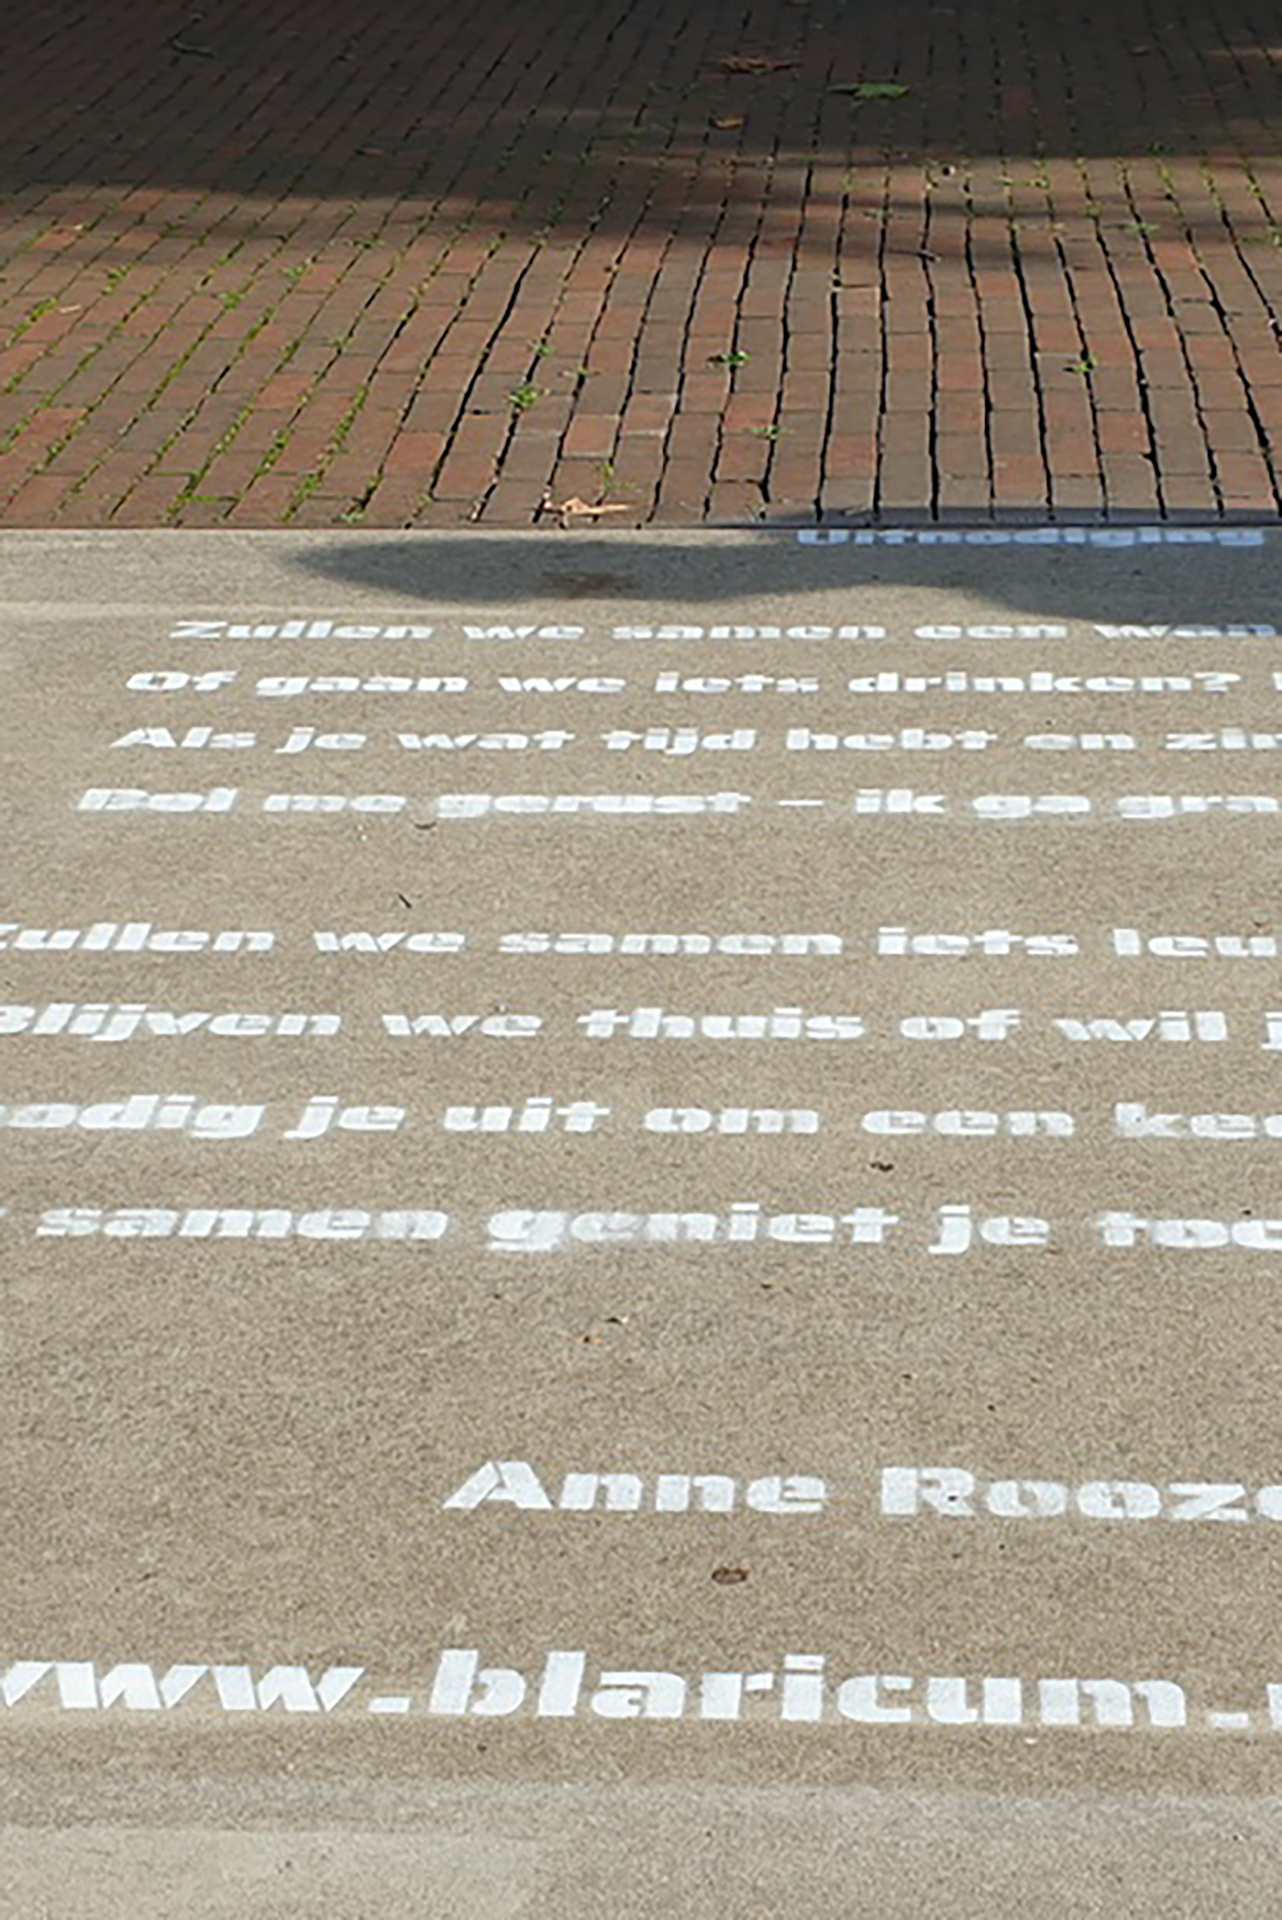 Uitnodiging
Zullen we samen een
Of gaan we iets drinken?
Als je wat tijd hebt en
Bel me gerust – ik ga
we samen iets
Blijven we thuis of wil
je uit om een
samen geniet je
Anne
www.blaricum.